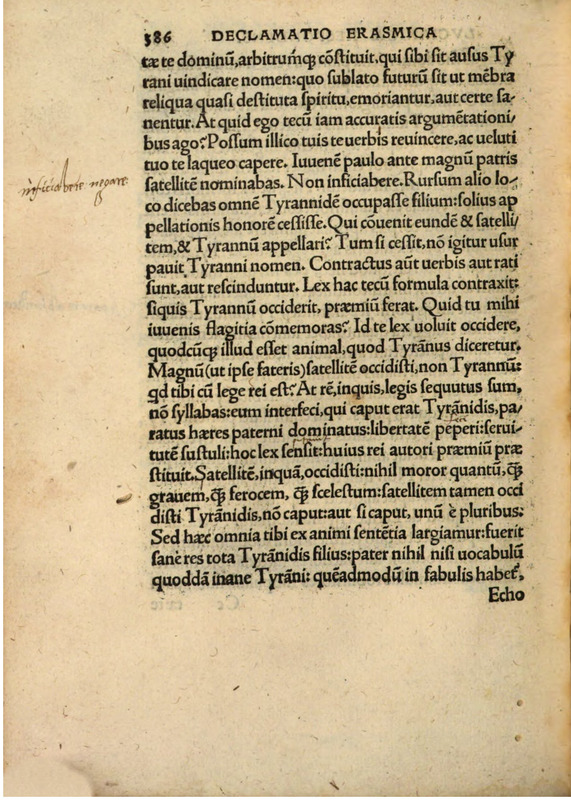 386 DECLAMATIO ERASMICA
tæ te dominũ,arbitrumq̃ cõstituit,qui sibi sit ausus Ty
rani uindicare nomen:quo sublato futurũ sit ut mẽbra
reliqua quasi destituta spiritu,emoriantur,aut certe sa-
nentur.At quid ego tecũ iam accuratis argumẽtationi/
bus ago?Possum illico tuis te uerbis reuincere,ac ueluti
tuo te laqueo capere. Iuuenẽ paulo ante magnũ patris
satellitẽ nominabas. Non inficiabere.Rursum alio lo-
co dicebas omnẽ Tyrannidẽ occupasse filium:solius ap
pellationis honorẽ cessisse.Qui cõuenit eundẽ & satelli/
tem,& Tyrannũ appellari? Tum si cessit,nõ igitur usur
pauit Tyranni nomen. Contractus aũt uerbis aut rati
sunt,aut rescinduntur. Lex hac tecũ formula contraxit:
siquis Tyrannũ occiderit, præmiũ ferat. Quid tu mihi
iuuenis flagitia cõmemoras? Id te lex uoluit occidere,
quodcũq̃ illud esset animal,quod Tyrãnus diceretur.
Magnũ(ut ipse fateris)satellitẽ occidisti,non Tyrannũ:
qd tibi cũ lege rei est? At rẽ,inquis,legis sequutus sum,
nõ syllabas:eum interfeci,qui caput erat Tyrãnidis,pa/
ratus hæres paterni dominatus:libertatẽ peperi:serui/
tutẽ sustuli:hoc lex sensit:huius rei autori præmiũ præ
stituit.Satellitẽ,inquã,occidisti:nihil moror quantũ,q̃
grauem,q̃ ferocem, q̃ scelestum:satellitem tamen occi
disti Tyrãnidis,nõ caput:aut si caput, unũ è pluribus.
Sed hæc omnia tibi ex animi sentẽtia largiamur:fuerit
sanè res tota Tyrãnidis filius:pater nihil nisi uocabulũ
quoddã inane Tyrãni: quẽadmodũ in fabulis habet,
Echo
inficiaberis negare